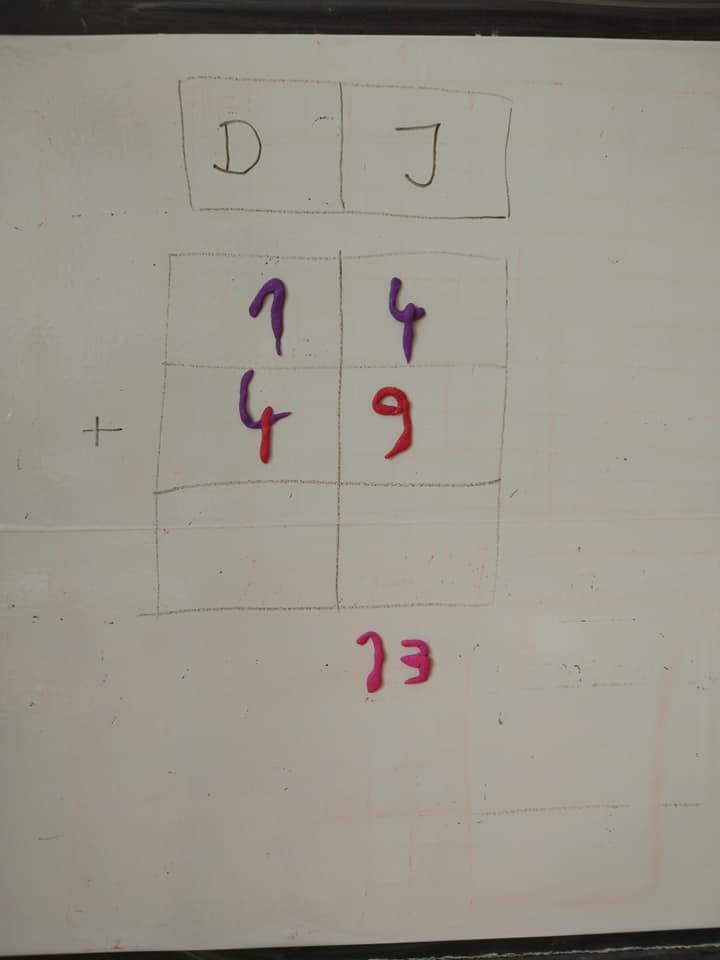 D J
1 4
+ 4 9
13